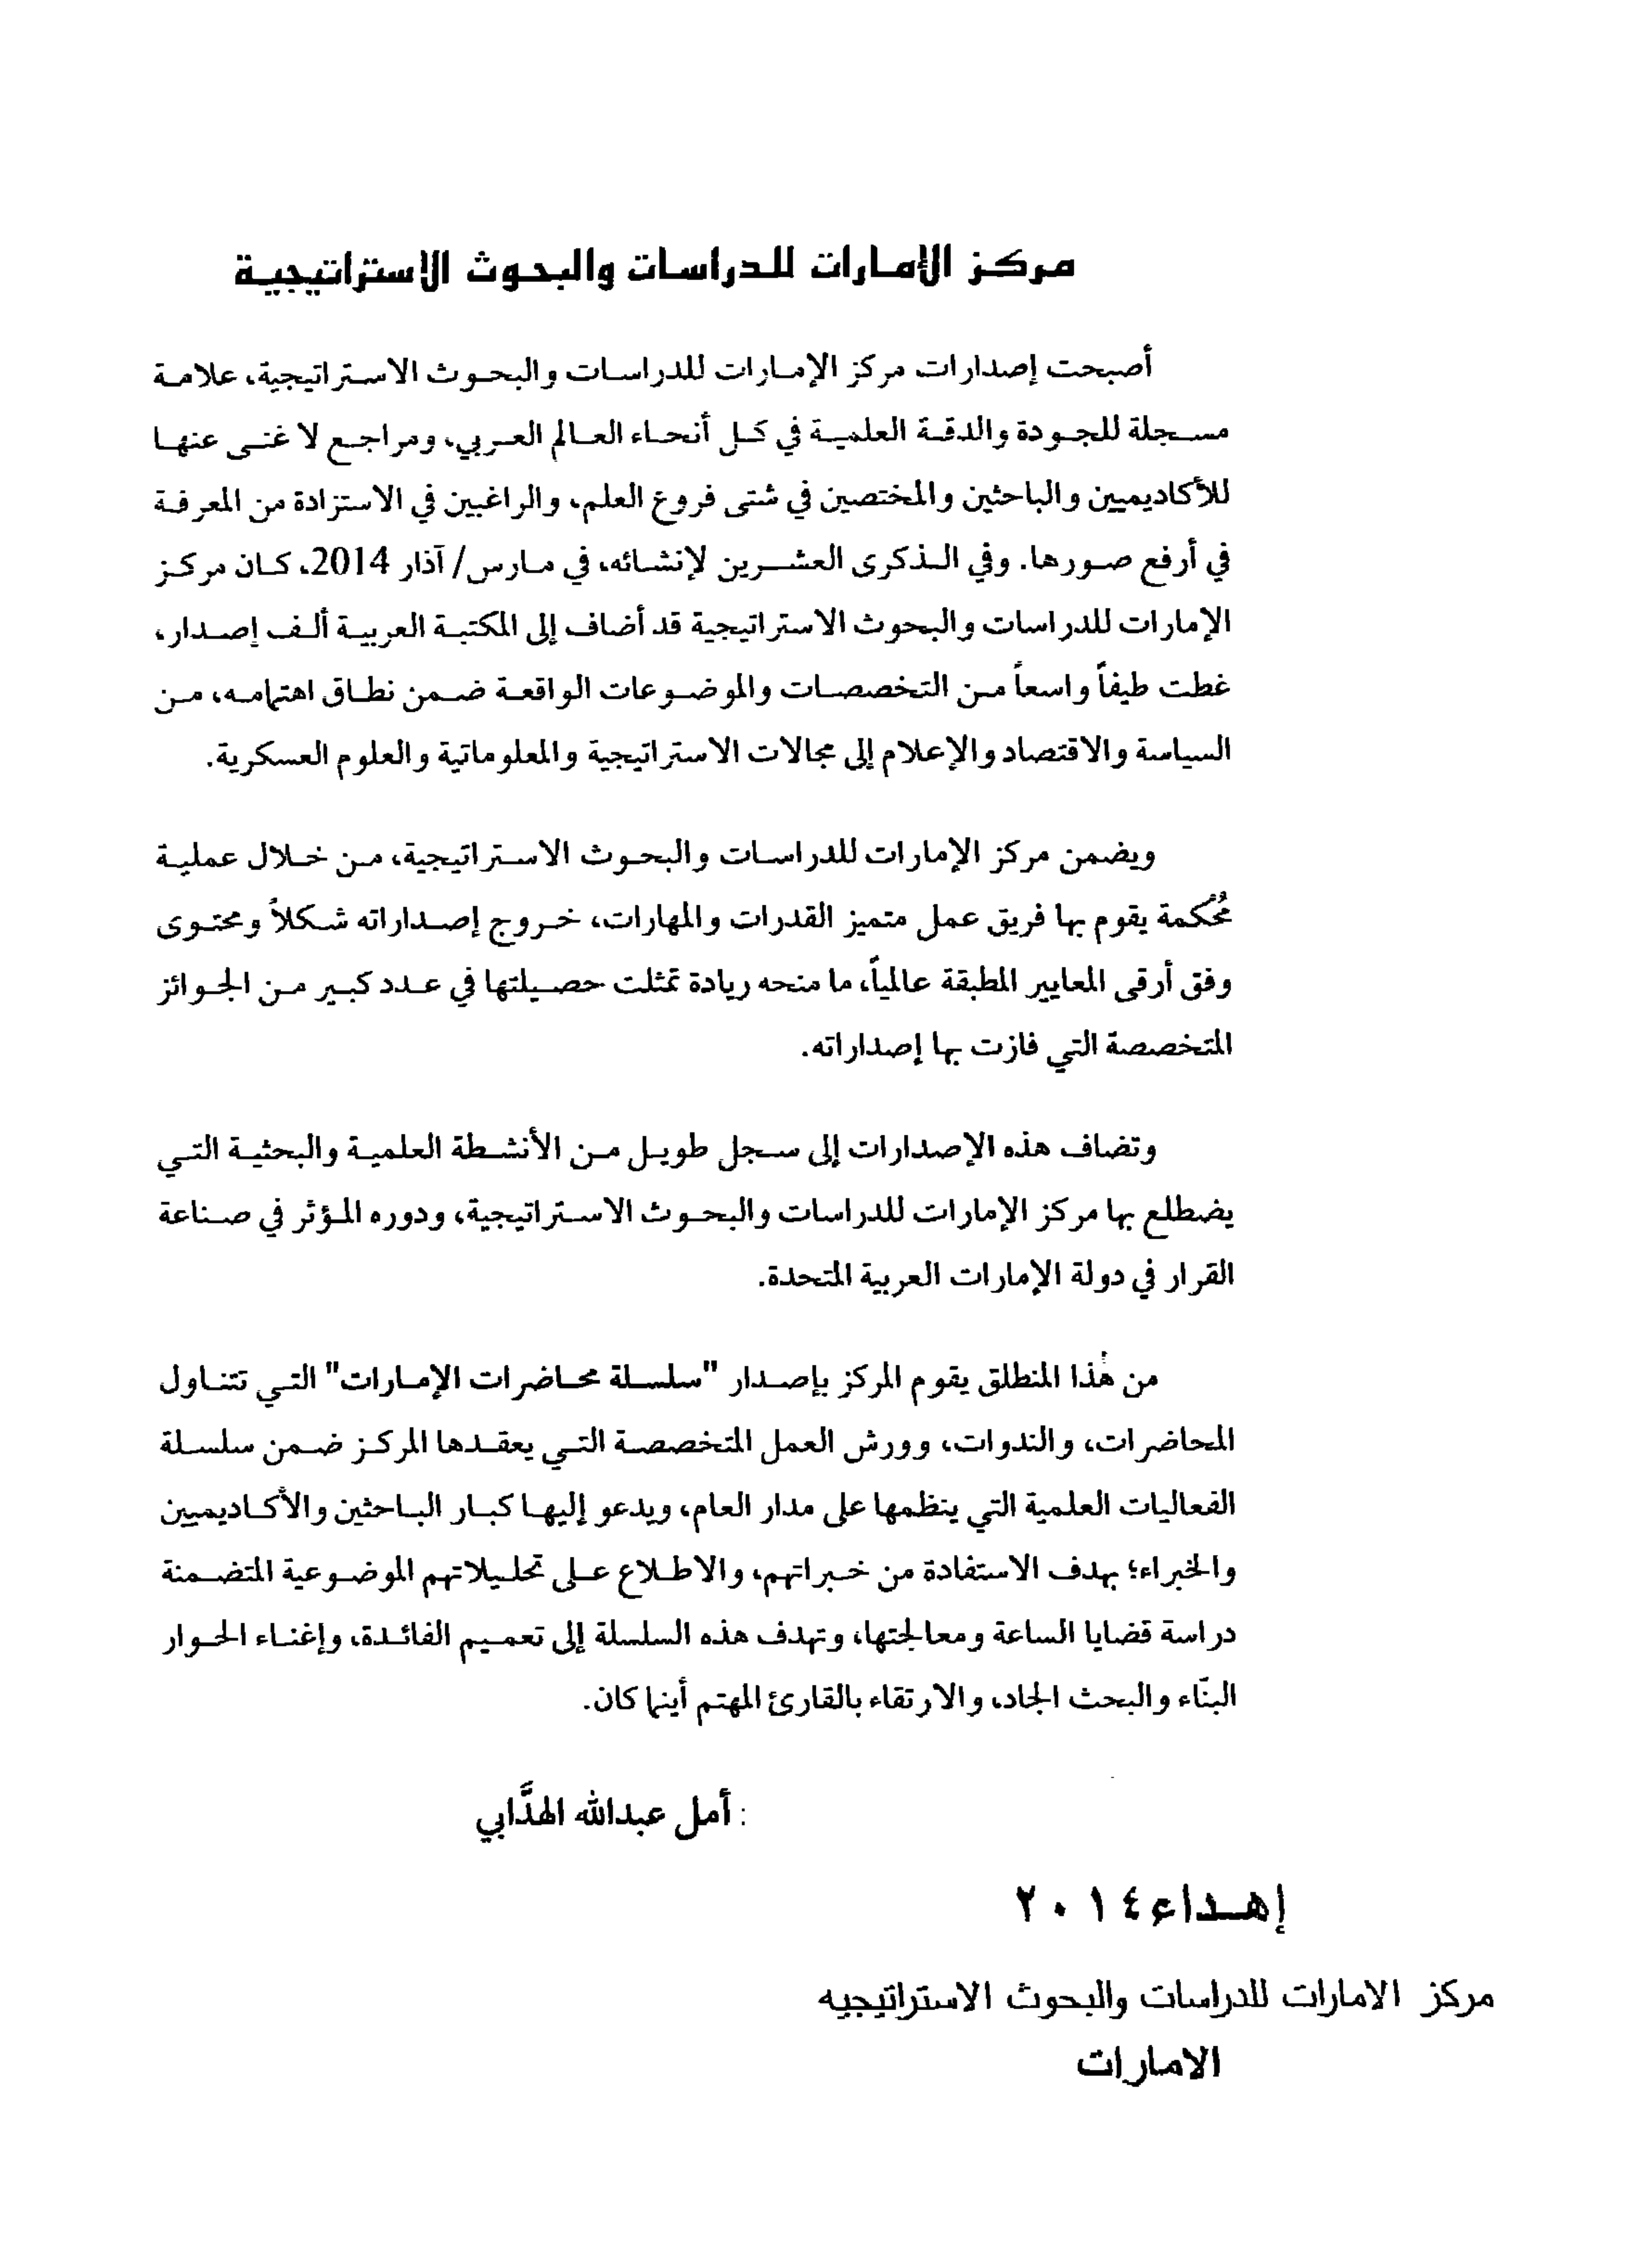 مركز الإمارات للدراسات والبحوث الاستراتيجية
أصبحت إصدارات مركز الإمارات للدراسات والبحوث الاستراتيجية، علامة
مسجلة للجودة والدقة العلمية في كل أنحاء العالم العربي، ومراجع لا غنى عنها
للأكاديميين والباحثين والمختصين في شتى فروع العلم، والراغبين في الاستزادة من المعرفة
في أرفع صورها. وفي الذكرى العشرين لإنشائه، في مارس/ آذار 2014، كان مركز
الإمارات للدراسات والبحوث الاستراتيجية قد أضاف إلى المكتبة العربية ألف إصدار،
غطت طيفاً واسعاً من التخصصات والموضوعات الواقعة ضمن نطاق اهتمامه، من
السياسة والاقتصاد والإعلام إلى مجالات الاستراتيجية والمعلوماتية والعلوم العسكرية.
ويضمن مركز الإمارات للدراسات والبحوث الاستراتيجية، من خلال عملية
مُحْكمة يقوم بها فريق عمل متميز القدرات والمهارات، خروج إصداراته شكلاً ومحتوى
وفق أرقى المعايير المطبقة عالمياً، ما منحه ريادة تمثلت حصيلتها في عدد كبير من الجوائز
المتخصصة التي فازت بها إصداراته.
وتضاف هذه الإصدارات إلى سجل طويل من الأنشطة العلمية والبحثية التي
يضطلع بها مركز الإمارات للدراسات والبحوث الاستراتيجية، ودوره المؤثر في صناعة
القرار في دولة الإمارات العربية المتحدة.
من هذا المنطلق يقوم المركز بإصدار "سلسلة محاضرات الإمارات" التي تتناول
المحاضرات، والندوات، وورش العمل المتخصصة التي يعقدها المركز ضمن سلسلة
الفعاليات العلمية التي ينظمها على مدار العام، ويدعو إليها كبار الباحثين والأكاديميين
والخبراء؛ بهدف الاستفادة من خبراتهم، والاطلاع على تحليلاتهم الموضوعية المتضمنة
دراسة قضايا الساعة ومعالجتها، وتهدف هذه السلسلة إلى تعميم الفائدة، وإغناء الحوار
البنّاء والبحث الجاد، والارتقاء بالقارئ المهتم أينما كان.
: أمل عبدالله الهدَّابي
إهداء ٢٠١٤
مركز الامارات للدراسات والبحوث الاستراتيجيه
الامارات